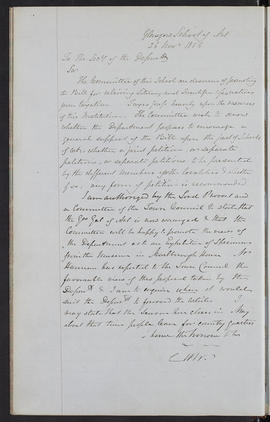 Glasgow School of Art
26 Novr 1856
To the Secy of the Departmt
Sir
The Committee of this School are desirous of promoting
the Bill for relieving Literary and Scientific Institutions
from taxation
of this Institution. The Committee wish to know
whether the Department proposes to encourage a
general support of the Bill upon the part of Schools
of Art, whether a joint petition, or separate
petitions, or separate petitions to be presented
by the different members of the localities & whether
if so, any form of petition is recommended
I am authorized by the Lord Provost and
a Committee of the Town Council to state that
the Gallery of Art is now arranged & that the
Committee will be happy to promote the views of
the Department as to an Exhibition of Specimens
from the Museum in Marlborough House. Mr
has reported to the Town Council the
favourable view of this proposal taken by the
Departmt & I am to enquire when it would
suit the Departmt to forward the articles. I
may state that the Season here closes in May
about that time people leave for country quarters
I have the honour to be